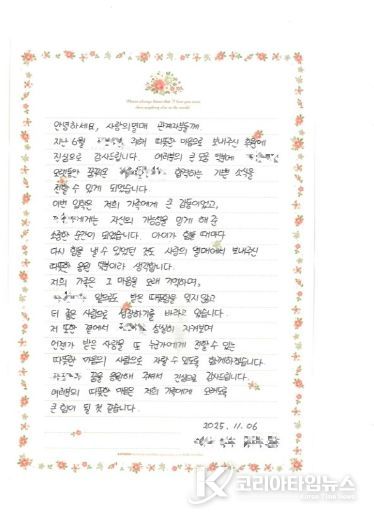 Please always know that I love you more
than anything else in the world.
안녕하세요, 사랑의열매 관계자분들께.
지난 6월 위해 따뜻한 마음으로 보내주신 후원에
진심으로 감사드립니다. 여러분의 큰 도움 덕분에
오랫동안 꿈꿔온 합격하는 기쁜 소식을
전할 수 있게 되었습니다.
이번 입학은 저희 가족에게 큰 감동이었고,
에게는 자신의 가능성을 믿게 해 준
소중한 순간이 되었습니다. 아이가 힘들 때마다
다시 힘을 낼 수 있었던 것도 사랑의 열매에서 보내주신
따뜻한 응원 덕분이라 생각합니다.
저희 가족은 그 마음을 오래 기억하며,
앞으로도 받은 따뜻함을 잊지 않고
더 좋은 사람으로 성장하기를 바라고 있습니다.
저 또한 곁에서 성실히 지켜보며
언젠가 받은 사랑을 또 누군가에게 전할 수 있는
따뜻한 마음의 사람으로 자랄 수 있도록 함께하겠습니다.
꿈을 응원해 주셔서 진심으로 감사드립니다.
여러분의 따뜻한 마음은 저희 가족에게 오래도록
큰 힘이 될 것 같습니다.
2025. 11. 06
코리아타임뉴스
Korea Time News